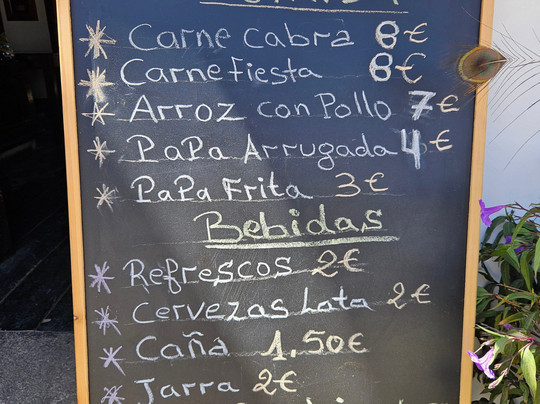 Carne cabra 8€
Carne fiesta 8€
Arroz con Pollo 7€
PaPa Arrugada 4€
PaPa Frita 3€
Bebidas
Refrescos 2€
Cervezas Lata 2€
Caña 1,50€
Jarra 2€